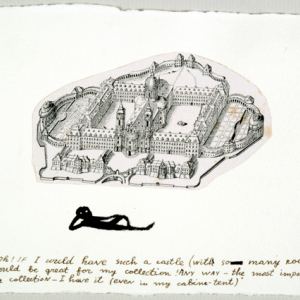 oh! IF I would have such a castle (with so many roo
ould be great for my collection! ANY WAY – the most impo
collection – I have it (even in my cabine-tent)